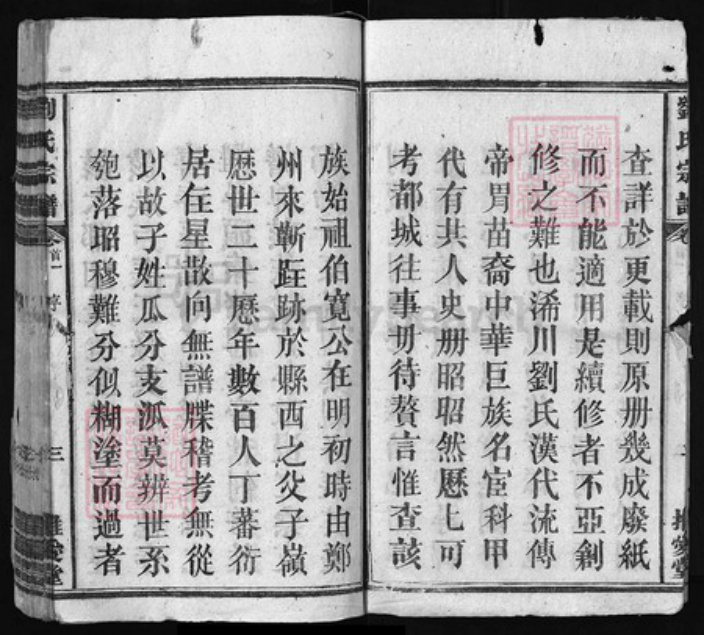 劉氏宗譜
查詳於更載則原册幾成廢紙
而不能適用是續修者不亞創
修之難也浠川劉氏漢代流傳
帝胃苗裔中華巨族名宦科甲
代有其人史册昭昭然歷七可
考都城往事毋待贅言惟查該
族始祖伯寬公在明初時由鄭
州來蘄跓跡於縣西之父子嶺
歷世二十歷年數百人丁蕃衍
居住星散向無譜牒稽考無從
以故子姓瓜分支派莫辨世系
匏落昭穆難分似糊塗而過者
劉氏宗譜
卷首一 序
三